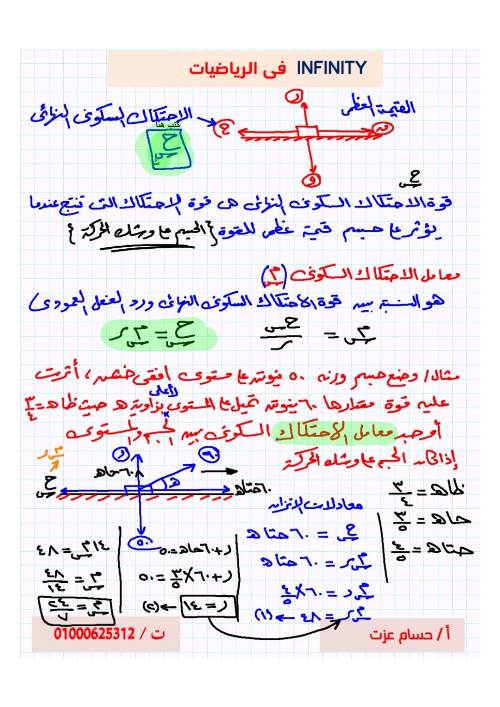 INFINITY فى الرياضيات
القيمة العظمى
الاحتكاك السكونى النهائى
كتب هنا
ح س
ر
و
ح س
قوة الاحتكاك السكونى النهائى هى قوة الاحتكاك التى تنتج عندما
يؤثر على جسم قيمة عظمى للقوة {الجسم على وشك الحركة}
معامل الاحتكاك السكونى (م س)
هو النسبة بين قوة الاحتكاك السكونى النهائى ورد الفعل العمودى
م س = ح س / ر
ح س = م س ر
مثال/ وضع جسم وزنه ٥٠ نيوتن على مستوى افقى خشن، أثرت
عليه قوة مقدارها ٦٠ نيوتن تميل على المستوى بزاوية هـ حيث ظاهـ = ٣/٤
لأعلى
أوجد معامل الاحتكاك السكونى بين الجسم والمستوى
إذا كان الجسم على وشك الحركة
م س ر
ح س
ر
٦٠ حاهـ
٦٠
هـ
٦٠ حتاهـ
٥٠
ظاهـ = ٣/٤
حاهـ = ٣/٥
حتاهـ = ٤/٥
معادلات الاتزان
ح س = ٦٠ حتاهـ
م س ر = ٦٠ حتاهـ
م س ر = ٦٠ × ٤/٥
م س ر = ٤٨ ← (١)
ر + ٦٠ حاهـ = ٥٠
ر + ٦٠ × ٣/٥ = ٥٠
ر = ١٤ ← (٢)
١٤ م س = ٤٨
م س = ٤٨/١٤
م س = ٢٤/٧
أ / حسام عزت
ت / 01000625312